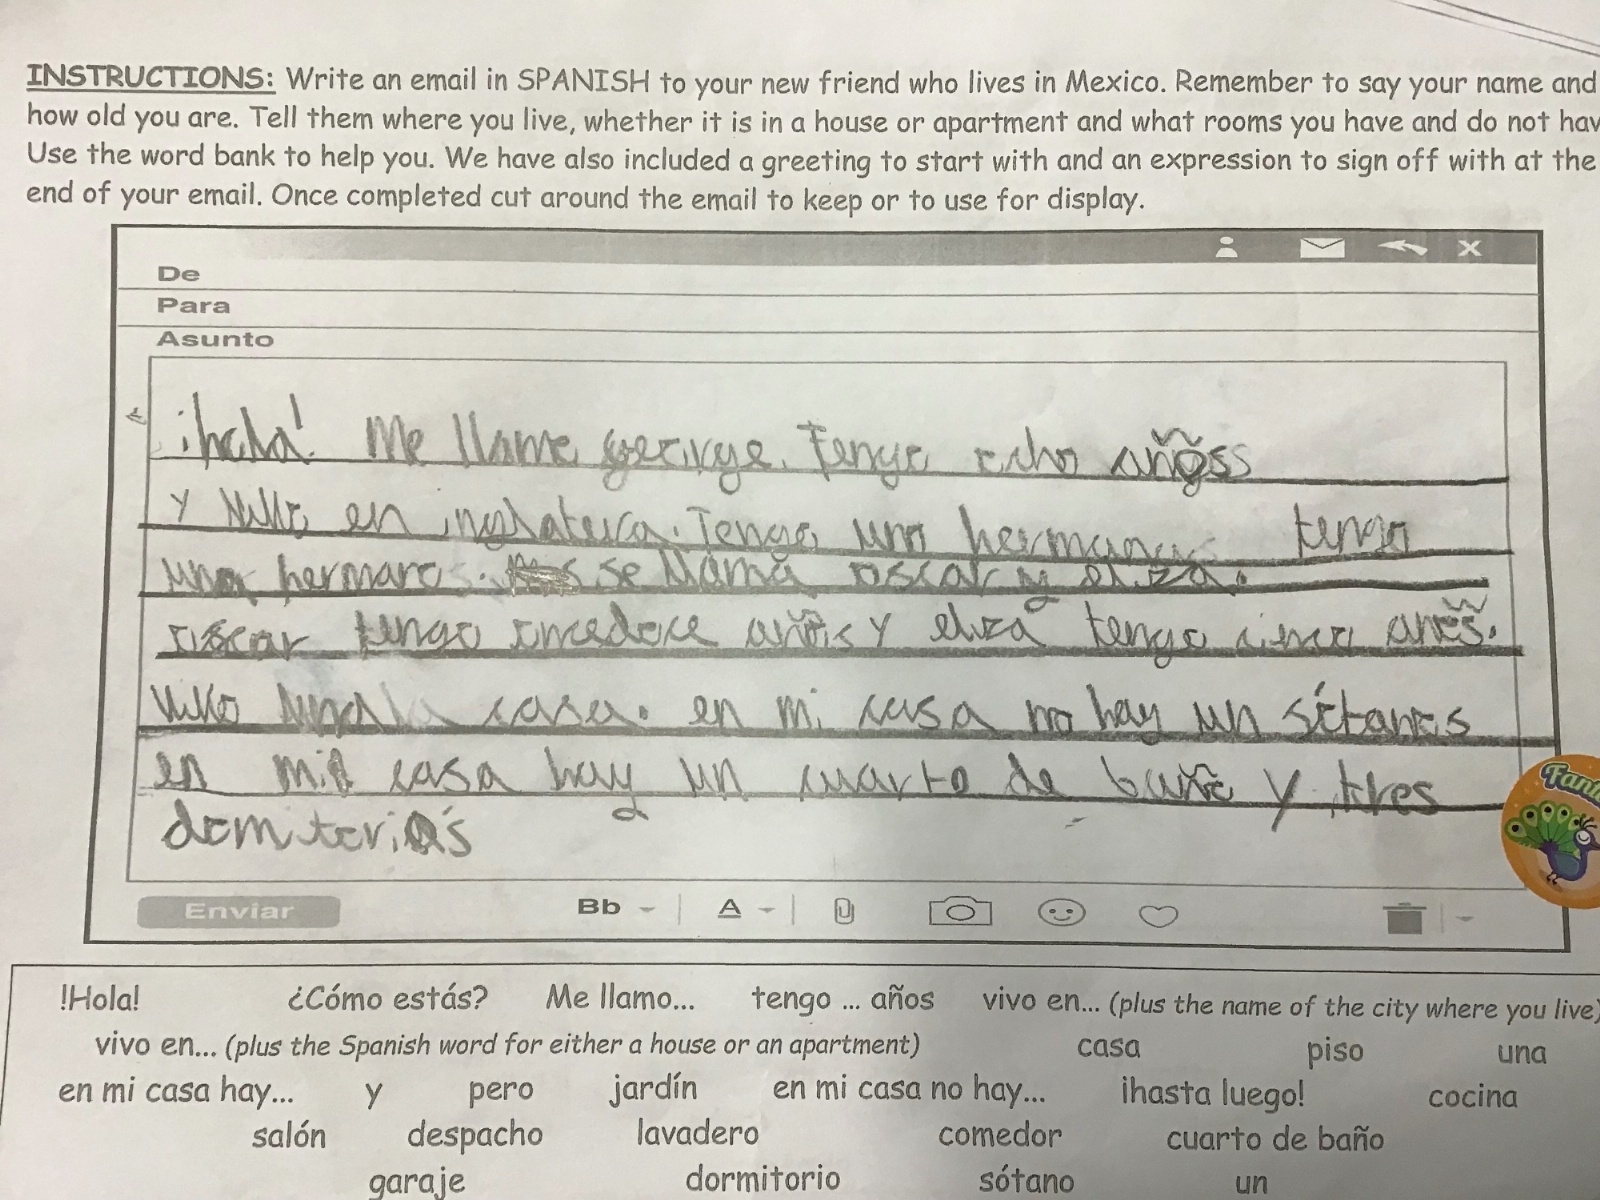 INSTRUCTIONS: Write an email in SPANISH to your new friend who lives in Mexico. Remember to say your name and
how old you are. Tell them where you live, whether it is in a house or apartment and what rooms you have and do not hav
Use the word bank to help you. We have also included a greeting to start with and an expression to sign off with at the
end of your email. Once completed cut around the email to keep or to use for display.
De
Para
Asunto
¡hola! Me llamo george. Tengo ocho añoss
y vivo en inglatera. Tengo un hermano tengo
una hermana. se llama oscar y eliza.
oscar tengo años y eliza tengo cinco años.
vivo casa. en mi casa no hay un sótano
en mi casa hay un cuarto de baño y tres
domitorios
Fant
Enviar
Bb A
!Hola! ¿Cómo estás? Me llamo... tengo ... años vivo en... (plus the name of the city where you live)
vivo en... (plus the Spanish word for either a house or an apartment) casa piso una
en mi casa hay... y pero jardín en mi casa no hay... ¡hasta luego! cocina
salón despacho lavadero comedor cuarto de baño
garaje dormitorio sótano un